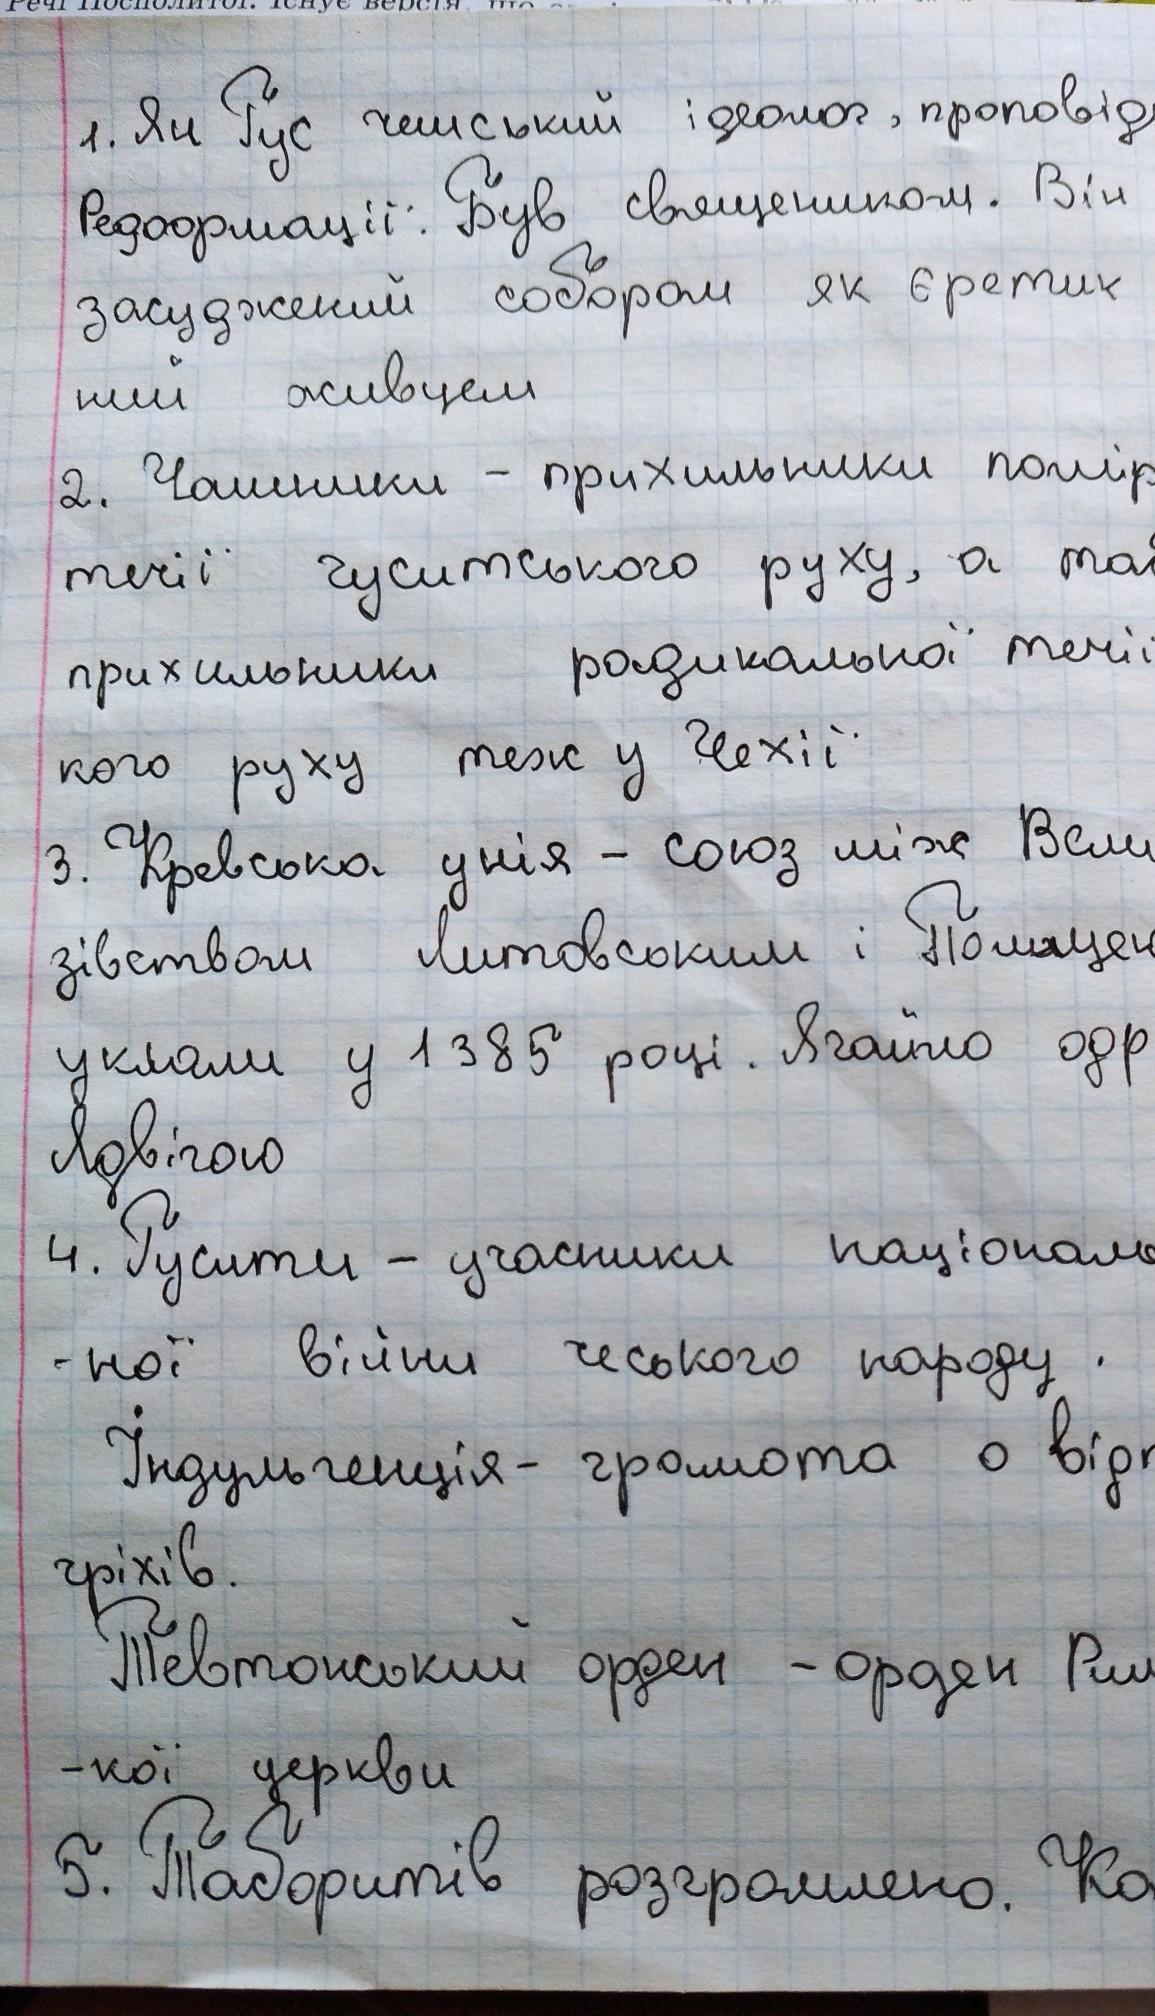 Речі Посполитої. Існує версія, що
1. Ян Гус чешський ідеолог, проповід
Редформації. Був священиком. Він
засуджений собором як єретик
ний живцем
2. Чашники - прихильники помір
течії гуситського руху, а та
прихильники радикальної течії
кого руху теж у Чехії
3. Кревська унія - союз між Вели
зівством Литовським і Польщею
уклали у 1385 році. Ягайло одр
Ядвігою
4. Гусити - учасники національ
-ної війни чеського народу.
Індульгенція - грамота о відп
гріхів.
Тевтонський орден - орден Рим
-кої церкви
5. Таборитів розгромлено. Ка